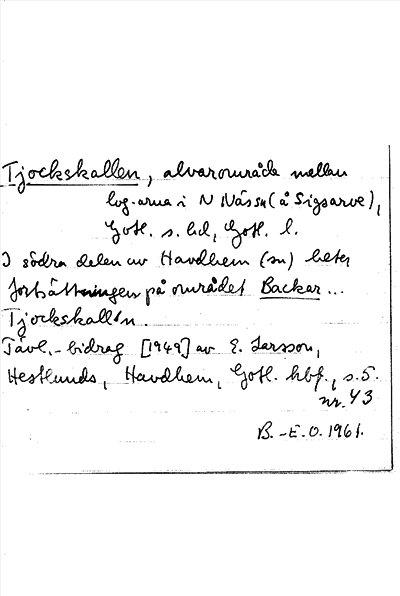 Tjockskallen, alvarområde mellan
log-arna i N Näs sn (å Sigsarve),
Gotl. s. hd, Gotl. l.
I södra delen av Havdhem (sn) heter
fortsättningen på området Backar...
Tjockskall'n.
Tävl.-bidrag [1949] av E. Larsson,
Hestlunds, Havdhem, Gotl. hbf., s. 5.
nr. 43
B.-E.O. 1961.